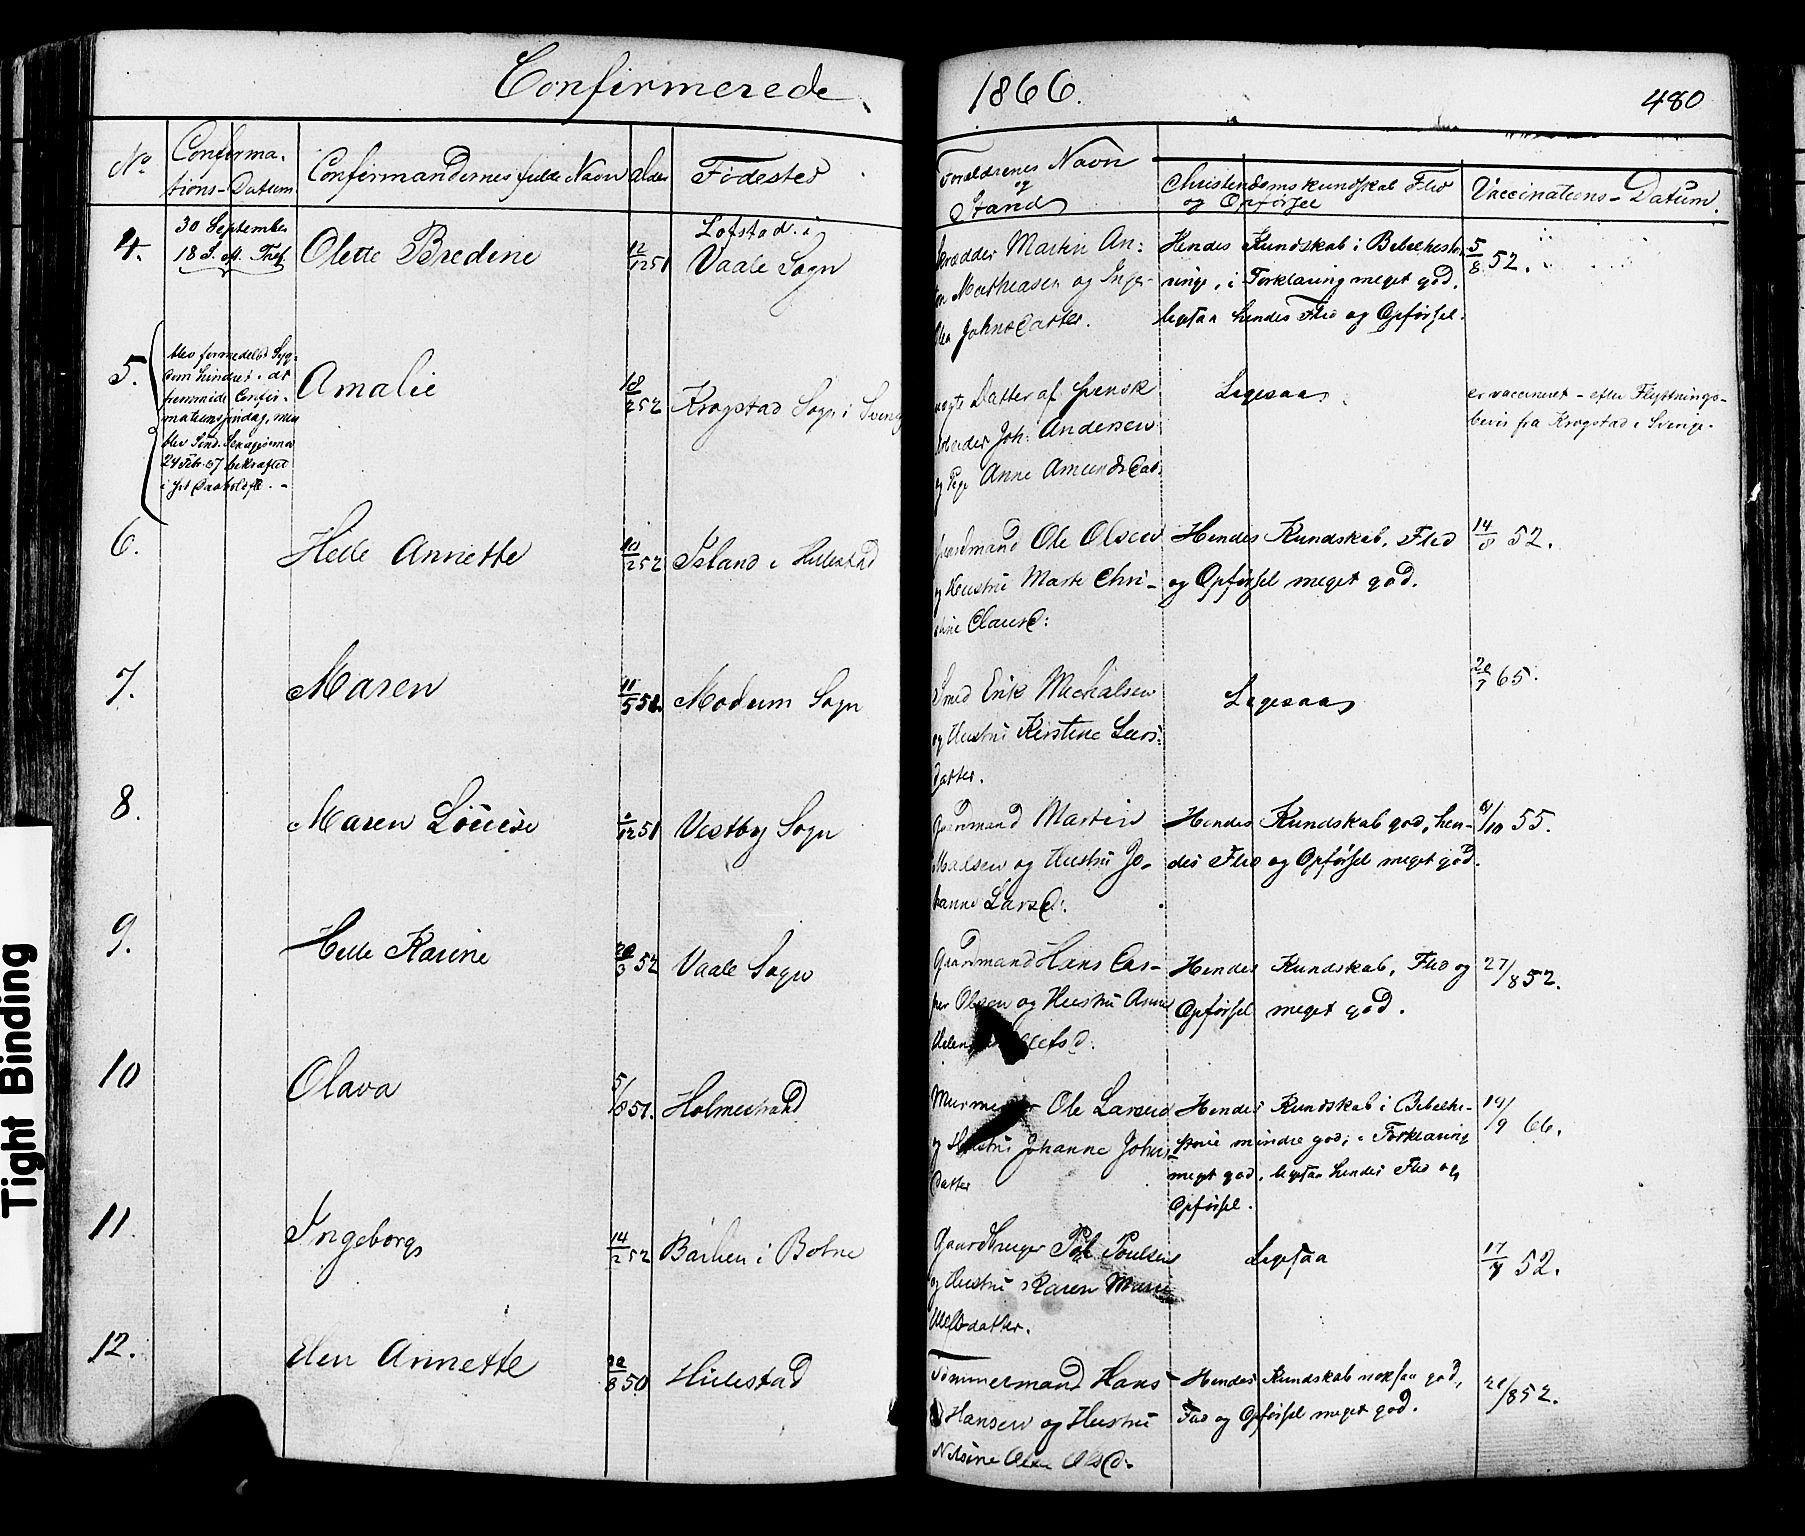 Confirmerede 1866. 480
No Confirma-
tions-Datum Confirmandernes fulde Navn Alder Fødested Forældrenes Navn
og
Stand Christendomskundskab Flid
og Opførsel Vaccinations-Datum.
4. 30 September
18 S. eft. Tref. Olette Bredine 12/12 51 Lofstad i
Vaale Sogn
Skrædder Martin An:
Mathiasen og Inge-
Johnsdatter.
Hendes Kundskab i Bibelhisto-
, i Forklaring meget god,
ligesaa hendes Flid og Opførsel.
5/8 52.
5. blev formedelst Syg-
dom hindret i at
fremmøde Confir-
mationsøndag, men
blev Sønd. Sexagesima
24 Feb. 67 bekræftet
i
Amalie 18/2 52 Krogstad Sogn i Sverig
uægte Datter af svensk
Arbeider Joh: Andersen
og Pige Anne Amundsdat
Ligesaa
er vaccineret - efter Flyttnings-
bevis fra Krogstad i Sverige.
6. Helle Annette 10/2 52 Island i Hillestad
Gaardmand Ole Olsen
og Hustru Marte Chri-
stine Clausd:
Hendes Kundskab, Flid
og Opførsel meget god.
14/8 52.
7. Maren 11/5 51. Modum Sogn
Smed Erik Michalsen
og Hustru Kirstine Lars:
datter.
Ligesaa
20/7 65.
8. Maren Lovise /12 51 Vestby Sogn
Gaardmand Martin
Madsen og Hustru Jo-
hanne Larsd:
Hendes Kundskab god, hen-
des Flid og Opførsel meget god.
/10 55.
9. Helle Karine 20/3 52 Vaale Sogn
Gaardmand Hans Cas-
per Olsen og Hustru Anne
Helen
Hendes Kundskab, Flid og
Opførsel meget god.
27/8 52.
10 Olava 5/8 51. Holmestrand
Murmester Ole Larsen
og Hustru Johanne Johns-
datter
Hendes Kundskab i Bibelhi-
storie mindre god, i Forklaring
meget god, ligesaa hendes Flid og
Opførsel.
19/9 66.
11. Ingeborg 14/2 52 Bakken i Botne
Gaardbruger Poul Poulsen
og Hustru Karen Marie
datter.
Ligesaa
17/7 52.
12. Elen Annette 22/8 50 Hillestad
Tømmermand Hans
Hansen og Hustru
Nilsine Olea Olsd.
Hendes Kundskab noksaa god,
Flid og Opførsel meget god.
21/8 52.
Tight Binding